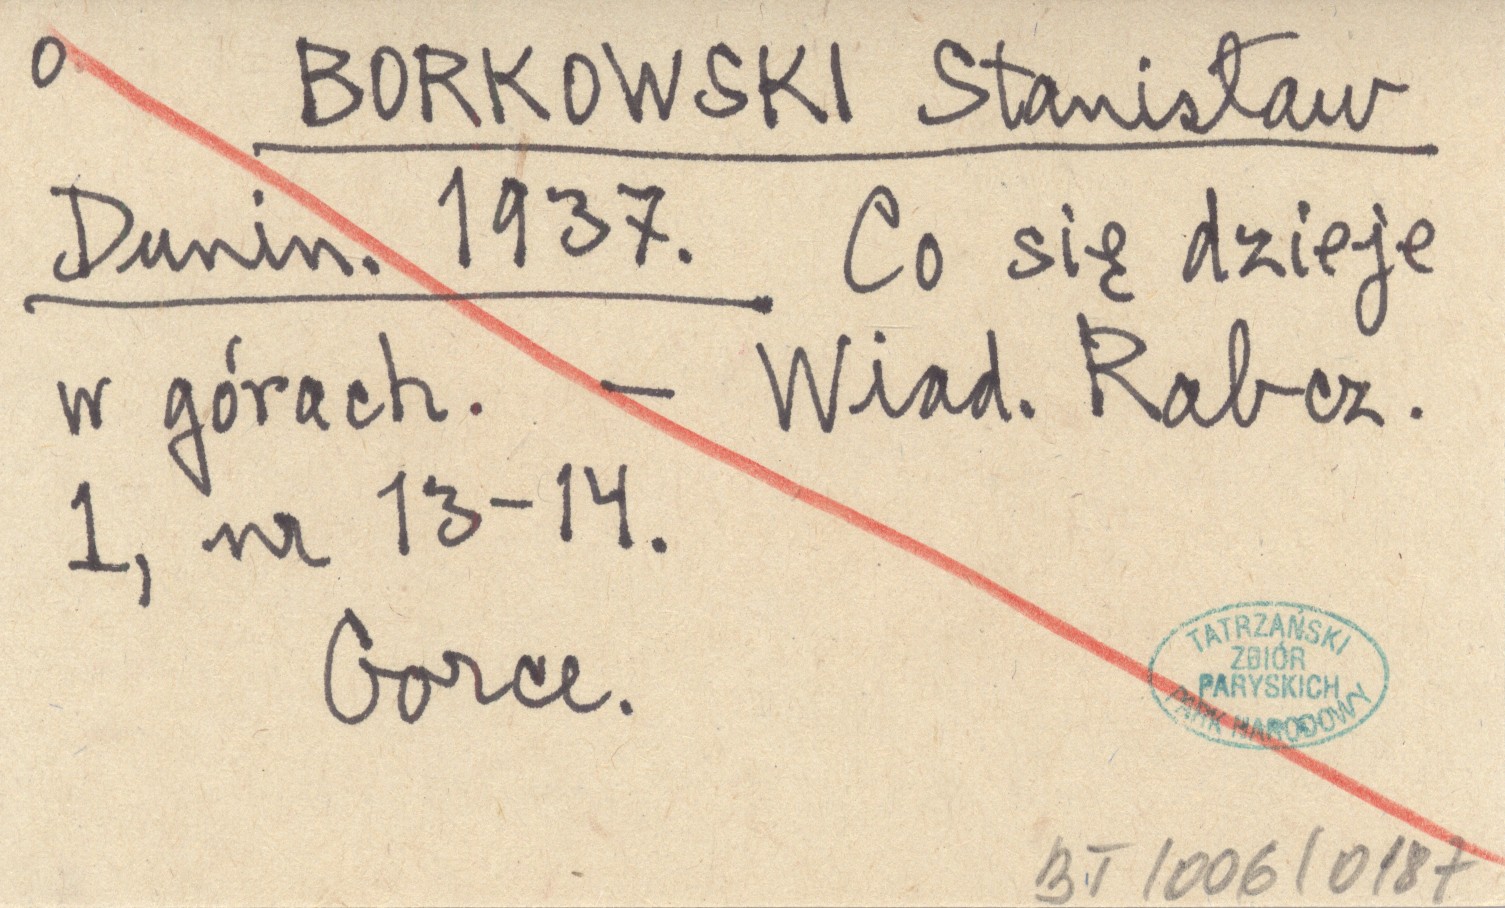 o BORKOWSKI Stanisław
Dunin. 1937. Co się dzieje
w górach. — Wiad. Rabcz.
1, nr 13-14.
Gorce.
TATRZAŃSKI
ZBIÓR
PARYSKICH
PARK NARODOWY
BT/006/0187